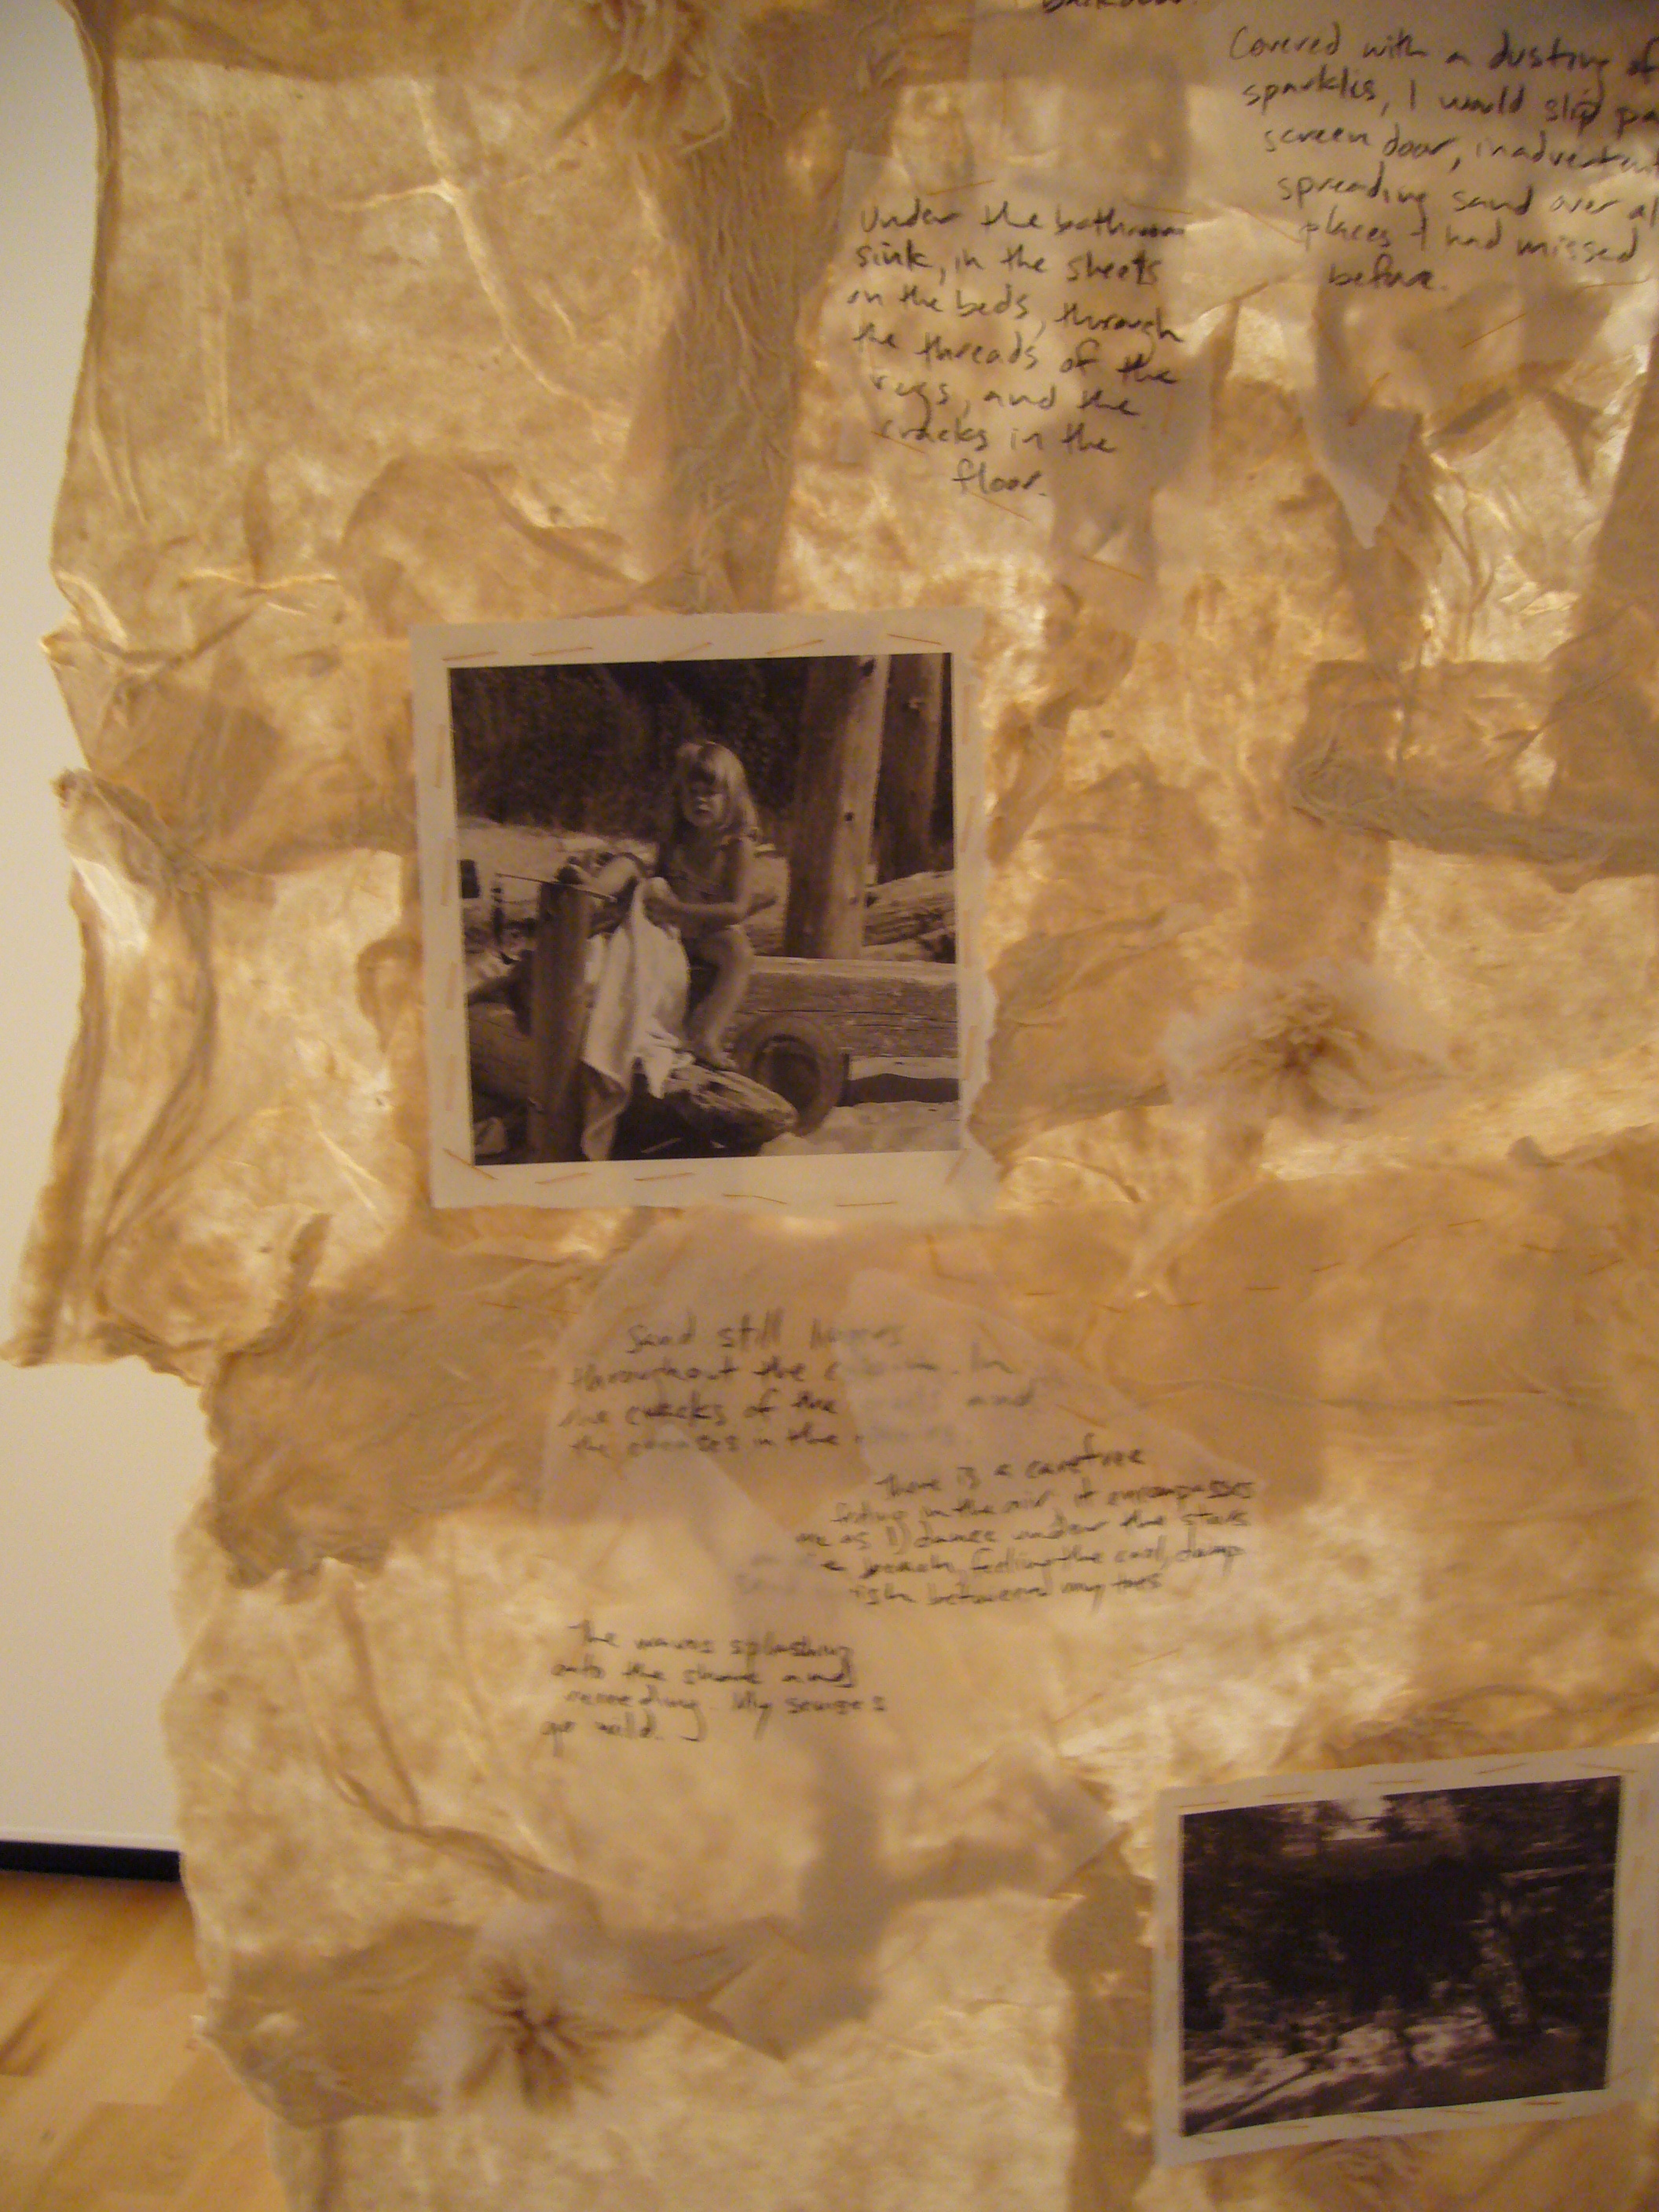 Covered with a dusting of
sparkles, I would slip pa
screen door, inadverten
spreading sand over al
places I had missed
before.
Under the bathroom
sink, in the sheets
on the beds, through
the threads of the
rugs, and the
cracks in the
floor.
Sand still
throughout the
the cracks of the and
the in the
There is a carefree
feeling in the air. it encompasses
me as I dance under the stars
beach, feeling the cool, damp
between my toes
The waves splashing
onto the shore and
receeding. My senses
go wild.